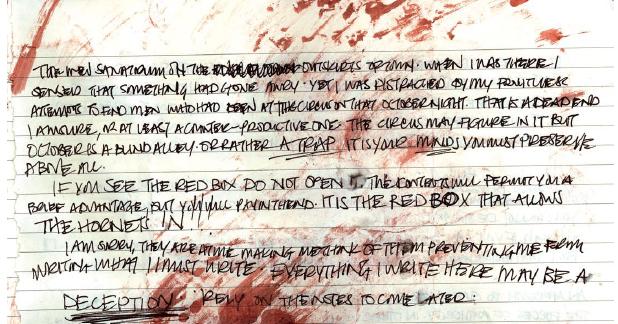 THE MEN SANATORIUM ON THE OUTSKIRTS OF TOWN. WHEN I WAS THERE I
SENSED THAT SOMETHING HAD GONE AWRY YET I WAS DISTRACTED BY MY FRUITLESS
ATTEMPTS TO FIND MEN WHO HAD BEEN AT THE CIRCUS ON THAT OCTOBER NIGHT. THAT IS A DEAD END
I AM SURE, OR AT LEAST A COUNTER-PRODUCTIVE ONE. THE CIRCUS MAY FIGURE IN IT BUT
OCTOBER IS A BLIND ALLEY. OR RATHER A TRAP. IT IS YOUR MINDS YOU MUST PRESERVE
ABOVE ALL.
IF YOU SEE THE RED BOX DO NOT OPEN IT. THE CONTENTS WILL PERMIT YOU A
BRIEF ADVANTAGE, BUT YOU WILL PAY IN THE END. IT IS THE RED BOX THAT ALLOWS
THE HORNETS IN!!
I AM SORRY, THEY ARE AT ME MAKING ME THINK OF THEM PREVENTING ME FROM
WRITING WHAT I MUST WRITE. EVERYTHING I WRITE HERE MAY BE A
DECEPTION. RELY ON THE NOTES TO COME LATER.